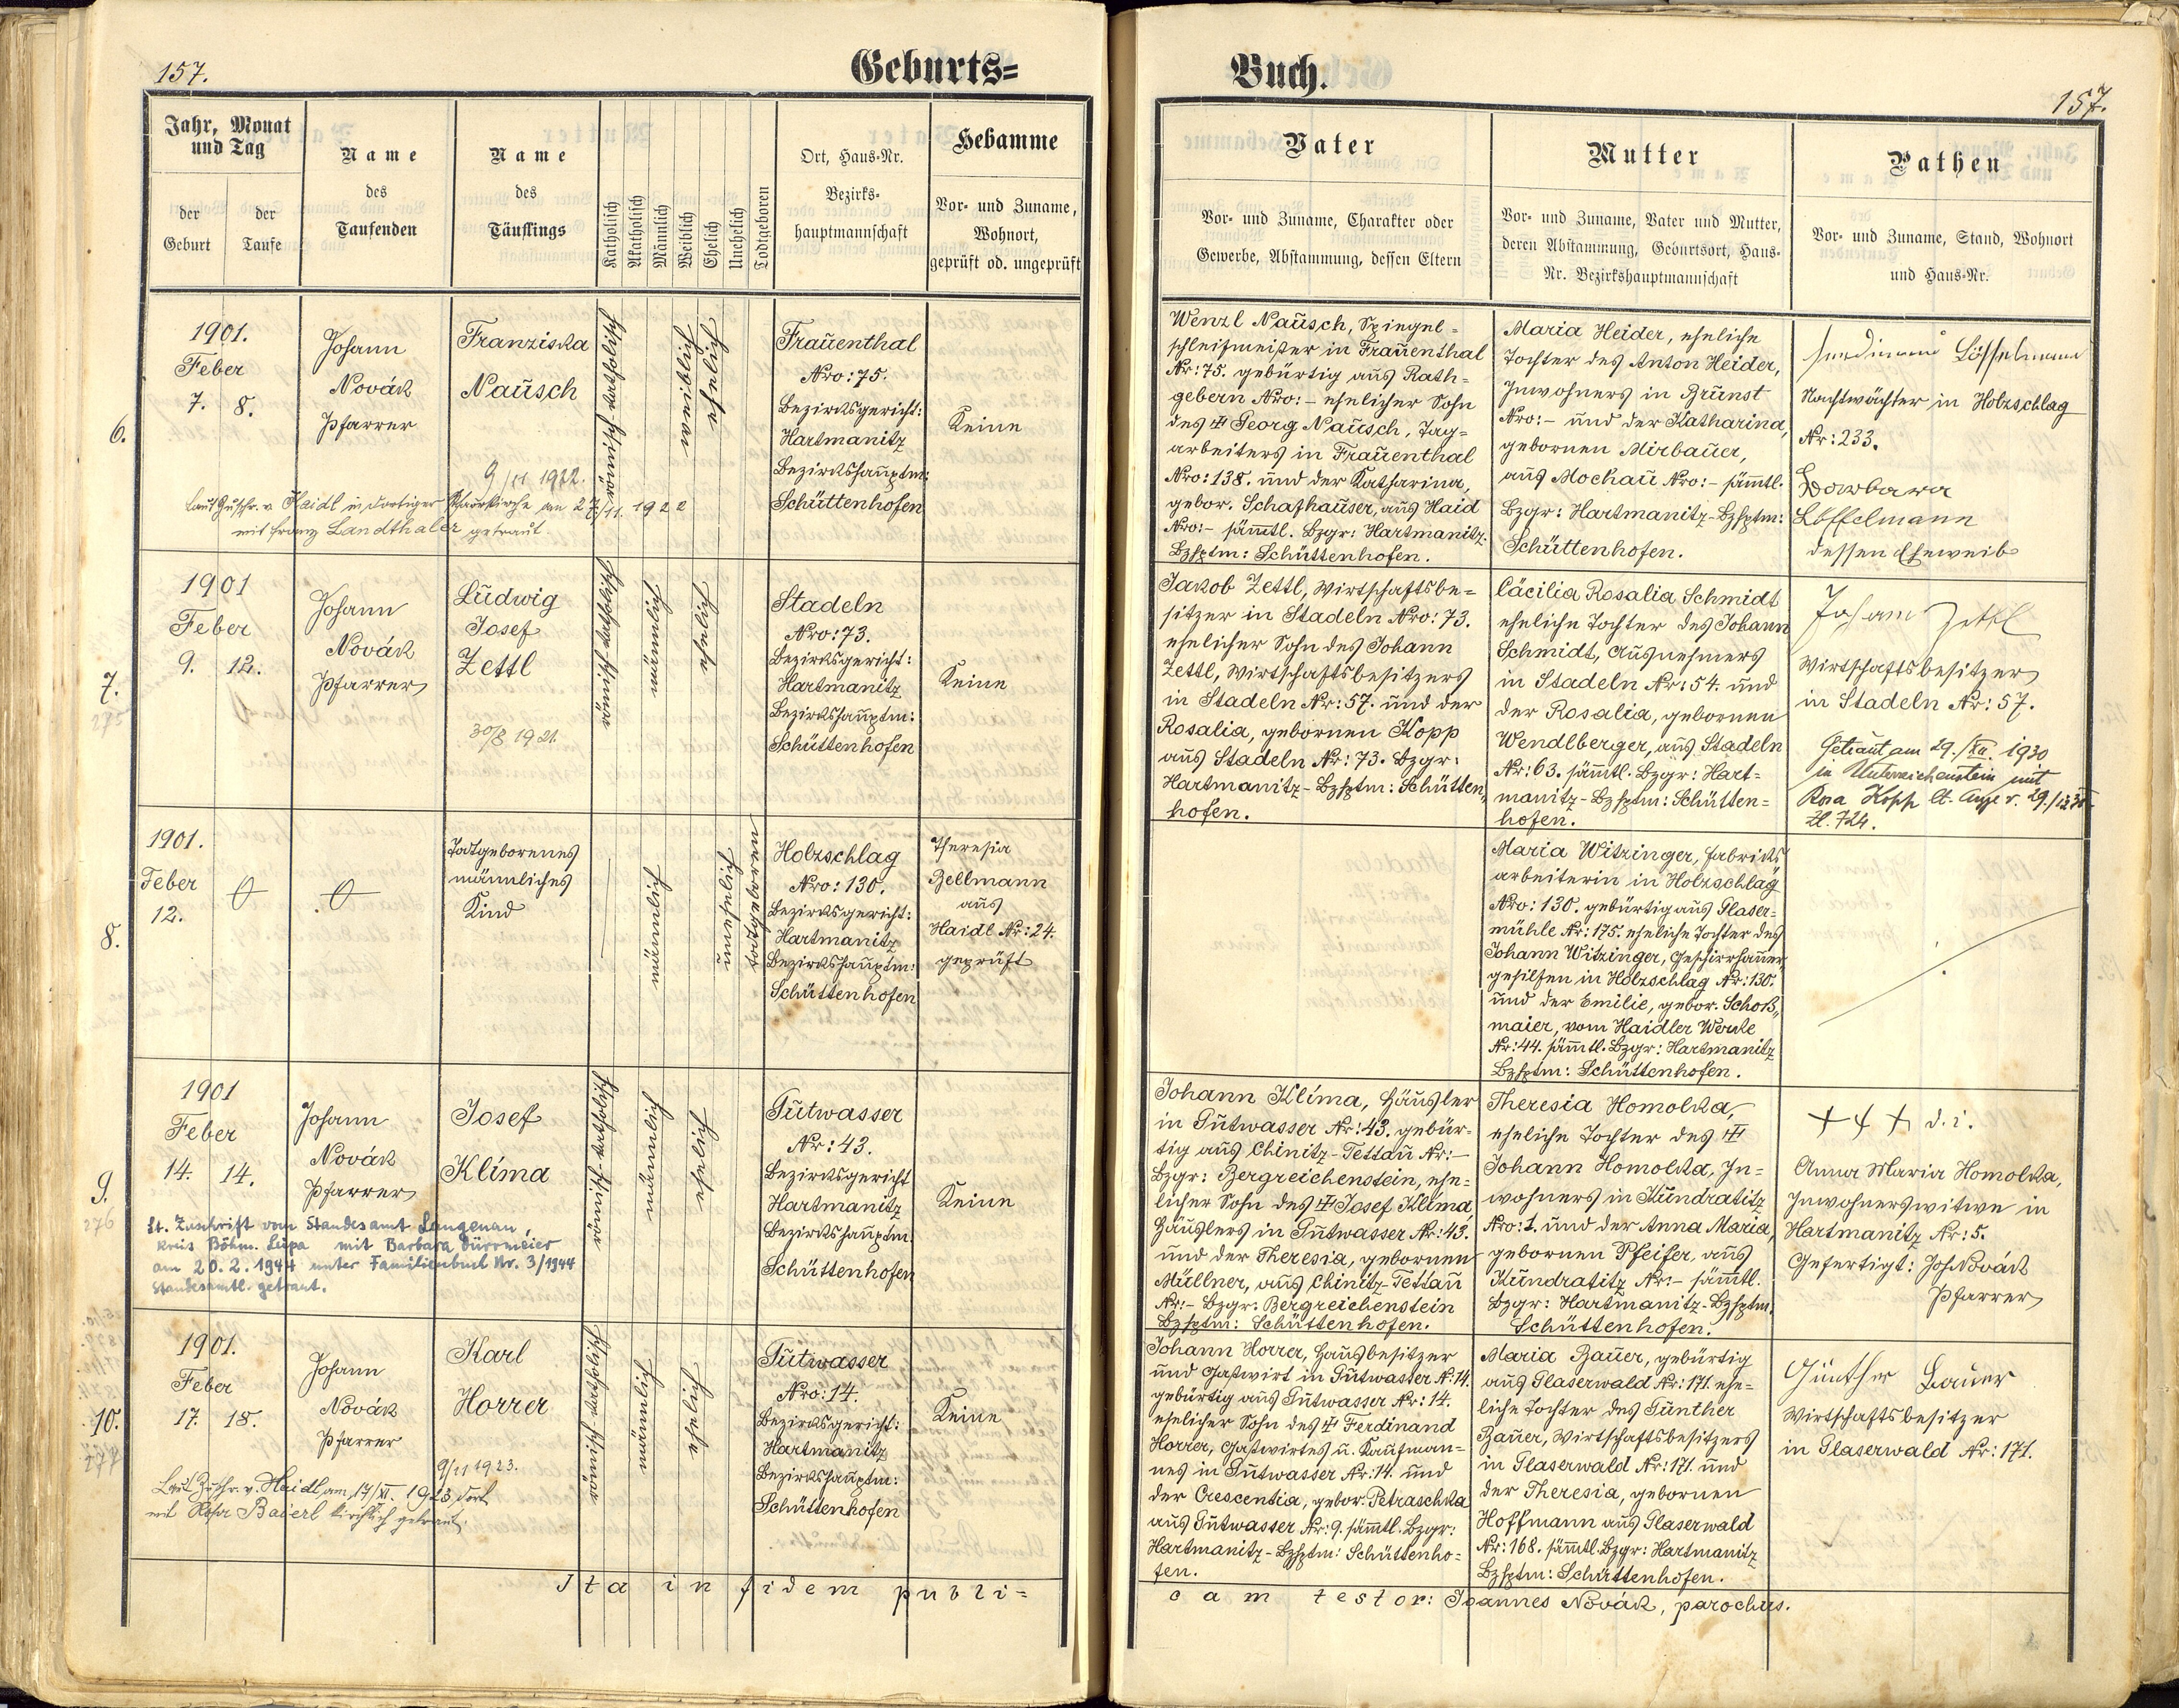 157.
Geburts=
Jahr, Monat
und Tag
der
Geburt
der
Taufe
Name
des
Taufenden
Name
des
Täuflings
Katholisch
Akatholisch
Männlich
Weiblich
Ehelich
Unehelich
Todtgeboren
Ort, Haus=Nr.
Bezirks=
hauptmannschaft
Hebamme
Vor= und Zuname,
Wohnort,
geprüft od. ungeprüft
6.
1901.
Feber
7. 8.
Johann
Novák
Pfarrer
Franziska
Nausch
9/11 1922.
Laut Zuschr. v. Haidl in dortiger Pfarrkirche am 27/11. 1922
mit Franz Landthaler getraut.
römisch-katholisch
weiblich
ehelich
Frauenthal
Nro: 75.
Bezirksgericht:
Hartmanitz
Bezirkshauptm:
Schüttenhofen
Keine
7.
275
1901
Feber
9. 12.
Johann
Novák
Pfarrer
Ludwig
Josef
Zettl
30/8 1921.
römisch-katholisch
männlich
ehelich
Stadeln
Nro: 73.
Bezirksgericht:
Hartmanitz
Bezirkshauptm:
Schüttenhofen
Keine
8.
1901.
Feber
12.
Totgeborenes
männliches
Kind
männlich
unehelich
totgeboren
Holzschlag
Nro: 130.
Bezirksgericht:
Hartmanitz
Bezirkshauptm:
Schüttenhofen
Theresia
Zellmann
aus
Haidl Nr: 24.
geprüft
9.
276
1901
Feber
14. 14.
Johann
Novák
Pfarrer
Josef
Klíma
Lt. Zuschrift vom Standesamt Langenau,
Kreis Böhm. Leipa mit Barbara Dürrmeier
am 20.2.1944 unter Familienbuch Nr. 3/1944
standesamtl. getraut.
römisch-katholisch
männlich
ehelich
Gutwasser
Nr: 43.
Bezirksgericht
Hartmanitz
Bezirkshauptm.
Schüttenhofen
Keine
10.
277
1901.
Feber
17. 18.
Johann
Novák
Pfarrer
Karl
Horrer
9/11 1923.
Laut Zuschr. v. Haidl am 17/XI. 1923 dort
mit Rosa Baierl kirchlich getraut.
römisch-katholisch
männlich
ehelich
Gutwasser
Nro: 14.
Bezirksgericht:
Hartmanitz
Bezirkshauptm:
Schüttenhofen
Keine
Ita in fidem publi=
Buch.
157.
Vater
Vor= und Zuname, Charakter oder
Gewerbe, Abstammung, dessen Eltern
Mutter
Vor= und Zuname, Vater und Mutter,
deren Abstammung, Geburtsort, Haus=
Nr. Bezirkshauptmannschaft
Pathen
Vor= und Zuname, Stand, Wohnort
und Haus=Nr.
Wenzl Nausch, Spiegel=
schleifmeister in Frauenthal
Nr: 75. gebürtig aus Rath=
gebern Nro: - ehelicher Sohn
des Georg Nausch, Tag=
arbeiters in Frauenthal
Nro: 138. und der Katharina,
gebor. Schafhauser, aus Haid
Nro: - sämmtl. Bzgr: Hartmanitz.
Bzhptm: Schüttenhofen.
Maria Heider, eheliche
Tochter des Anton Heider,
Inwohners in Brunst
Nro: - und der Katharina,
gebornen Mirbauer,
aus Mochau Nro: - sämmtl.
Bzgr: Hartmanitz-Bzhptm:
Schüttenhofen.
Ferdinand Löffelmann
Nachtwächter in Holzschlag
Nr: 233.
Barbara
Löffelmann
dessen Eheweib
Jakob Zettl, Wirtschaftsbe=
sitzer in Stadeln Nro: 73.
ehelicher Sohn des Johann
Zettl, Wirtschaftsbesitzers
in Stadeln Nr: 57. und der
Rosalia, gebornen Kopp
aus Stadeln Nr: 73. Bzgr:
Hartmanitz - Bzhptm: Schütten„
hofen.
Cäcilia Rosalia Schmidt
eheliche Tochter des Johann
Schmidt, Ausnehmers
in Stadeln Nr: 54. und
der Rosalia, gebornen
Wendlberger, aus Stadeln
Nr: 63. sämmtl. Bzgr: Hart=
manitz - Bzhptm: Schütten=
hofen.
Johann Zettl
Wirtschaftsbesitzer
in Stadeln Nr: 57.
Getraut am 29./XII. 1930
in Unterreichenstein mit
Rosa Kopp lt.
Zl. 724.
Maria Witzinger, Fabriks
arbeiterin in Holzschlag
Nro: 130. gebürtig aus Glaser=
mühle Nr: 175. eheliche Tochter des
Johann Witzinger, Geschirrhauer
gehilfen in Holzschlag Nr: 130.
und der Emilie, gebor. Schoß„
maier, vom Haidler Werke
Nr: 44. sämmtl. Bzgr: Hartmanitz
Bzhptm: Schüttenhofen.
Johann Klíma, Häusler
in Gutwasser Nr: 43. gebür=
tig aus Chinitz-Tettau Nr: -
Bzgr: Bergreichenstein, ehe=
licher Sohn des Josef Klíma,
Häuslers in Gutwasser Nr: 43.
und der Theresia, gebornen
Müllner, aus Chinitz-Tettau
Nr: - Bzgr: Bergreichenstein
Bzhptm: Schüttenhofen.
Theresia Homolka,
eheliche Tochter des
Johann Homolka, In=
wohners in Kundratitz
Nro: 1. und der Anna Maria,
gebornen Pfeifer, aus
Kundratitz Nr: - sämmtl.
Bzgr: Hartmanitz-Bzhptm.
Schüttenhofen.
+ + + d. i.
Anna Maria Homolka,
Inwohnerswitwe in
Hartmanitz Nr: 5.
Gefertigt: Joh Novák
Pfarrer
Johann Horrer, Hausbesitzer
und Gastwirt in Gutwasser N: 14.
gebürtig aus Gutwasser Nr: 14.
ehelicher Sohn des Ferdinand
Horrer, Gastwirtes u. Kaufman=
nes in Gutwasser Nr: 14. und
der Crescentia, gebor. Petraschka
aus Gutwasser Nr: 9. sämmtl. Bzgr:
Hartmanitz - Bzhptm: Schüttenho=
fen.
Maria Bauer, gebürtig
aus Glaserwald Nr: 171. ehe=
liche Tochter des Günther
Bauer, Wirtschaftsbesitzers
in Glaserwald Nr: 171. und
der Theresia, gebornen
Hoffmann aus Glaserwald
Nr: 168. sämmtl. Bzgr: Hartmanitz
Bzhptm: Schüttenhofen.
Günther Bauer
Wirtschaftsbesitzer
in Glaserwald Nr: 171.
cam testor: Joannes Novák, parochus.